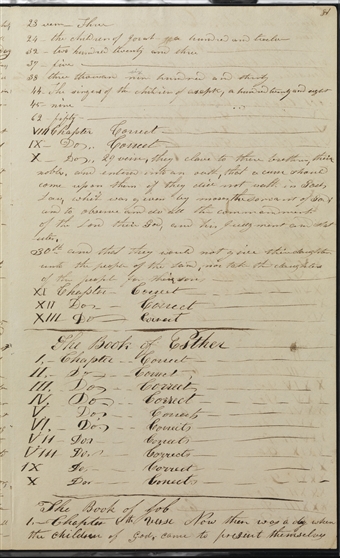 31
23 verse Three
24 - the children of  hundred and twelve
32 - two hundred twenty and three
37 - five
38 three thousand nine hundred and thirty
44 The singers the children of asaph, a hundred forty and eight
45 - nine
62 fifty
VIII Chapter Correct
IX - Do, - Correct
X - Do, 29 verse, they clave to there brethren, their
nobles, and entered into an oath, that a curse should
come upon them if they did not walk in Gods
Law, which was given by moses the servant of God
and to observe and do all the commandments
of the Lord their God, and his judgement and Stat
utes,
30th and that they would not give their daughters
unto the people of the land, nor take the daughters
of the people for their sons
XI Chapter - Correct
XII Do - Correct
XIII Do - Correct
The Book of Esther
I, - Chapter - Correct
II, - Do - Correct
III, Do, - Correct,
IV, Do, - Correct
V Do, - Correct
VI, - Do, - Correct
VII Do, - Correct
VIII Do, - Correct
IX Do - Correct
X Do, - Correct
The Book of Job
1, - Chapter 6th Verse Now there was a day when
the children of God, came to present themselves